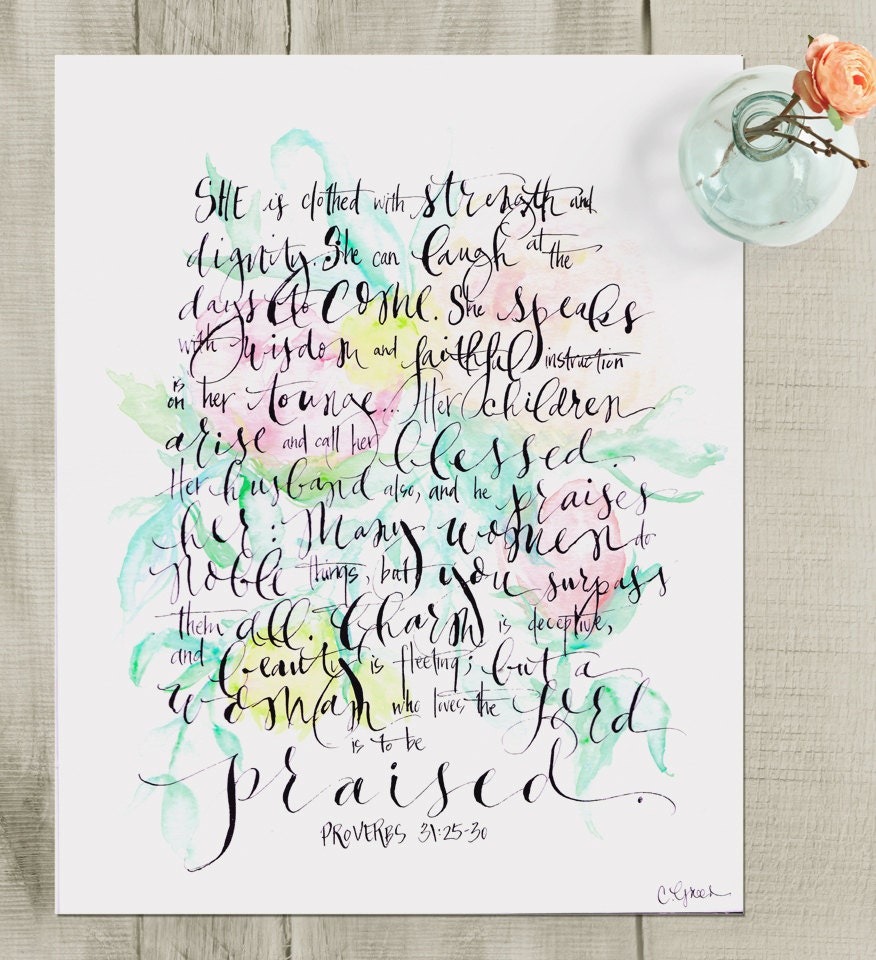 SHE is clothed with strength and
dignity. She can laugh at the
days to come. She speaks
with wisdom and faithful instruction
is on her tounge... Her children
arise and call her blessed.
Her husband also, and he praises
her: Many women do
noble things, but you surpass
them all. Charm is deceptive,
and beauty is fleeting; but a
woman who loves the Lord
is to be
praised.
PROVERBS 31:25-30
C. Green